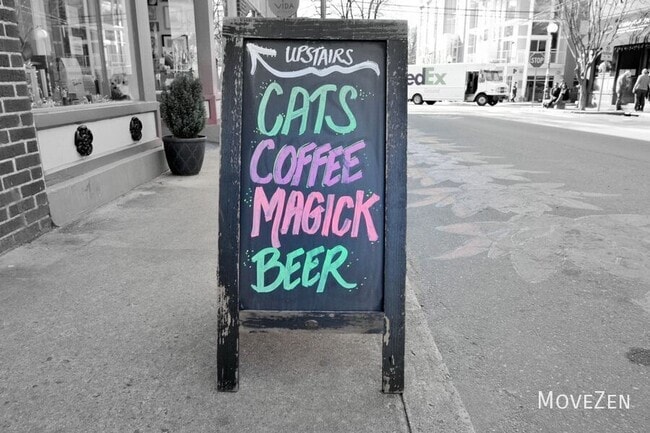 UPSTAIRS
CATS
COFFEE
MAGICK
BEER
VIDA
edEx
STOP
MOVEZEN